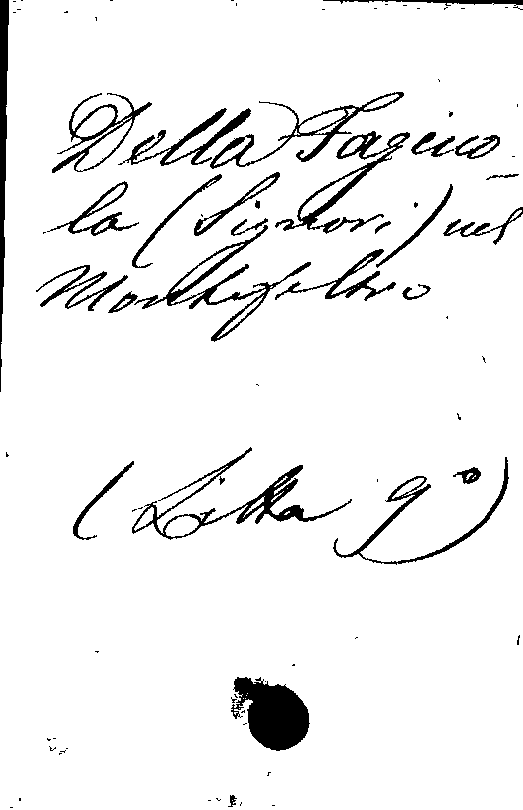 Della Faggio-
la (Signori) nel
Montefeltro
(Litta 9°)